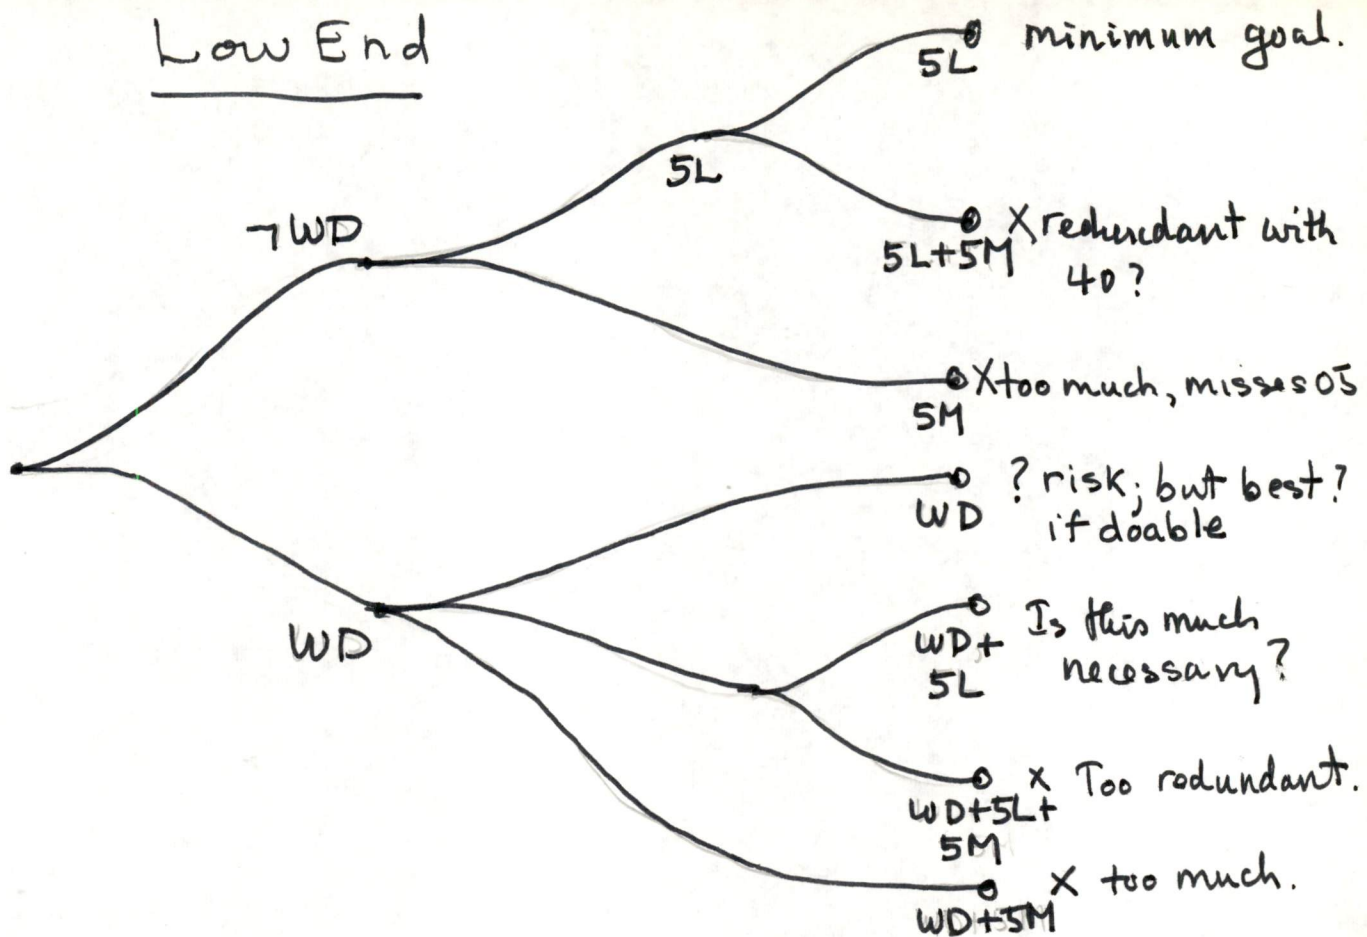 Low End
5L
minimum goal.
5L
¬WD
5L+5M
X redundant with
40?
5M
X too much, misses 05
WD
? risk; but best?
if doable
WD
WD+
5L
Is this much
necessary?
WD+5L+
5M
X Too redundant.
WD+5M
X too much.